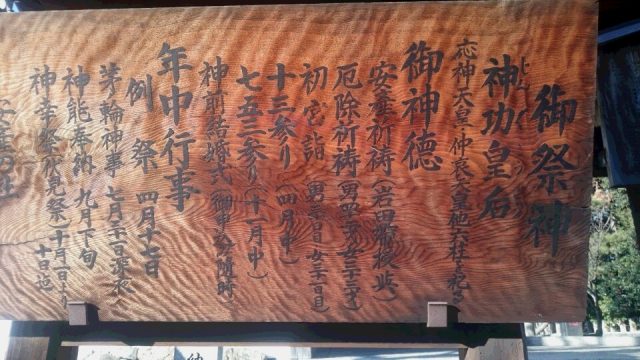 御祭神
神功皇后
応神天皇・仲哀天皇他六柱を祀る
御神徳
安産祈祷(岩田帯授与)
厄除祈祷(男四二才女三十三才)
初宮詣(男三一日女三二日)
十三参り(四月中)
七五三参り(十一月中)
神前結婚式(御申込随時)
年中行事
例祭 四月十七日
茅輪神事 七月三一日深夜
神能奉納 九月下旬
神幸祭(伏見祭)十月一日より十日迄